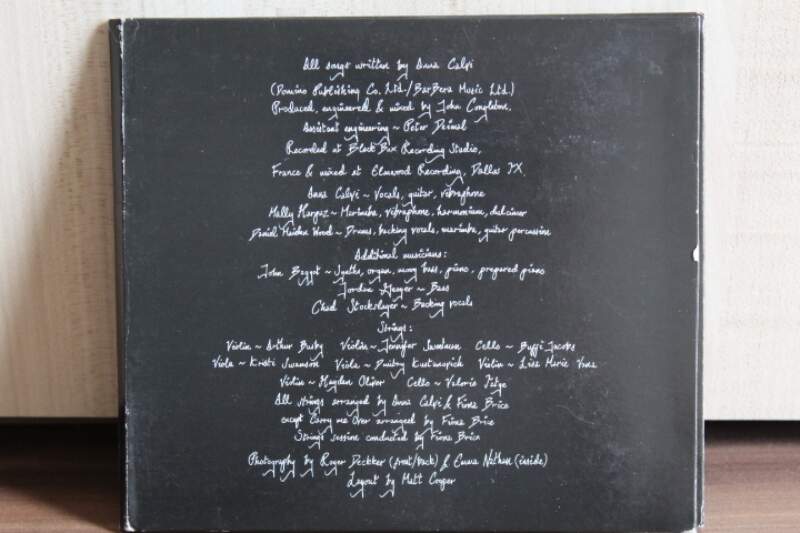 All songs written by Anna Calvi
(Domino Publishing Co. Ltd./BarBera Music Ltd.)
Produced, engineered & mixed by John Congleton.
Assistant engineering ~ Peter Deimel
Recorded at Black Box Recording Studio,
France & mixed at Elmwood Recording, Dallas TX.
Anna Calvi ~ Vocals, guitar, vibraphone
Mally Harpaz ~ Marimba, vibraphone, harmonium, dulcimer
Daniel Maiden Wood ~ Drums, backing vocals, marimba, guitar percussion
Additional musicians:
John Baggot ~ Synths, organ, moog bass, piano, prepared piano
Jordan Geiger ~ Bass
Chad Stockslager ~ Backing vocals
Strings:
Violin ~ Arthur Busby Violin ~ Jennifer Cello ~ Buffi Jacobs
Viola ~ Kristi Swanson Viola ~ Dmitry Kustanovich Violin ~ Lise Marie
Violin ~ Hayden Oliver Cello ~ Valerie
All strings arranged by Anna Calvi & Fiona Brice
except Carry me Over arranged by Fiona Brice
Strings session conducted by Fiona Brice
Photography by Roger Deckker (front/back) & Emma Nathan (inside)
Layout by Matt Cooper